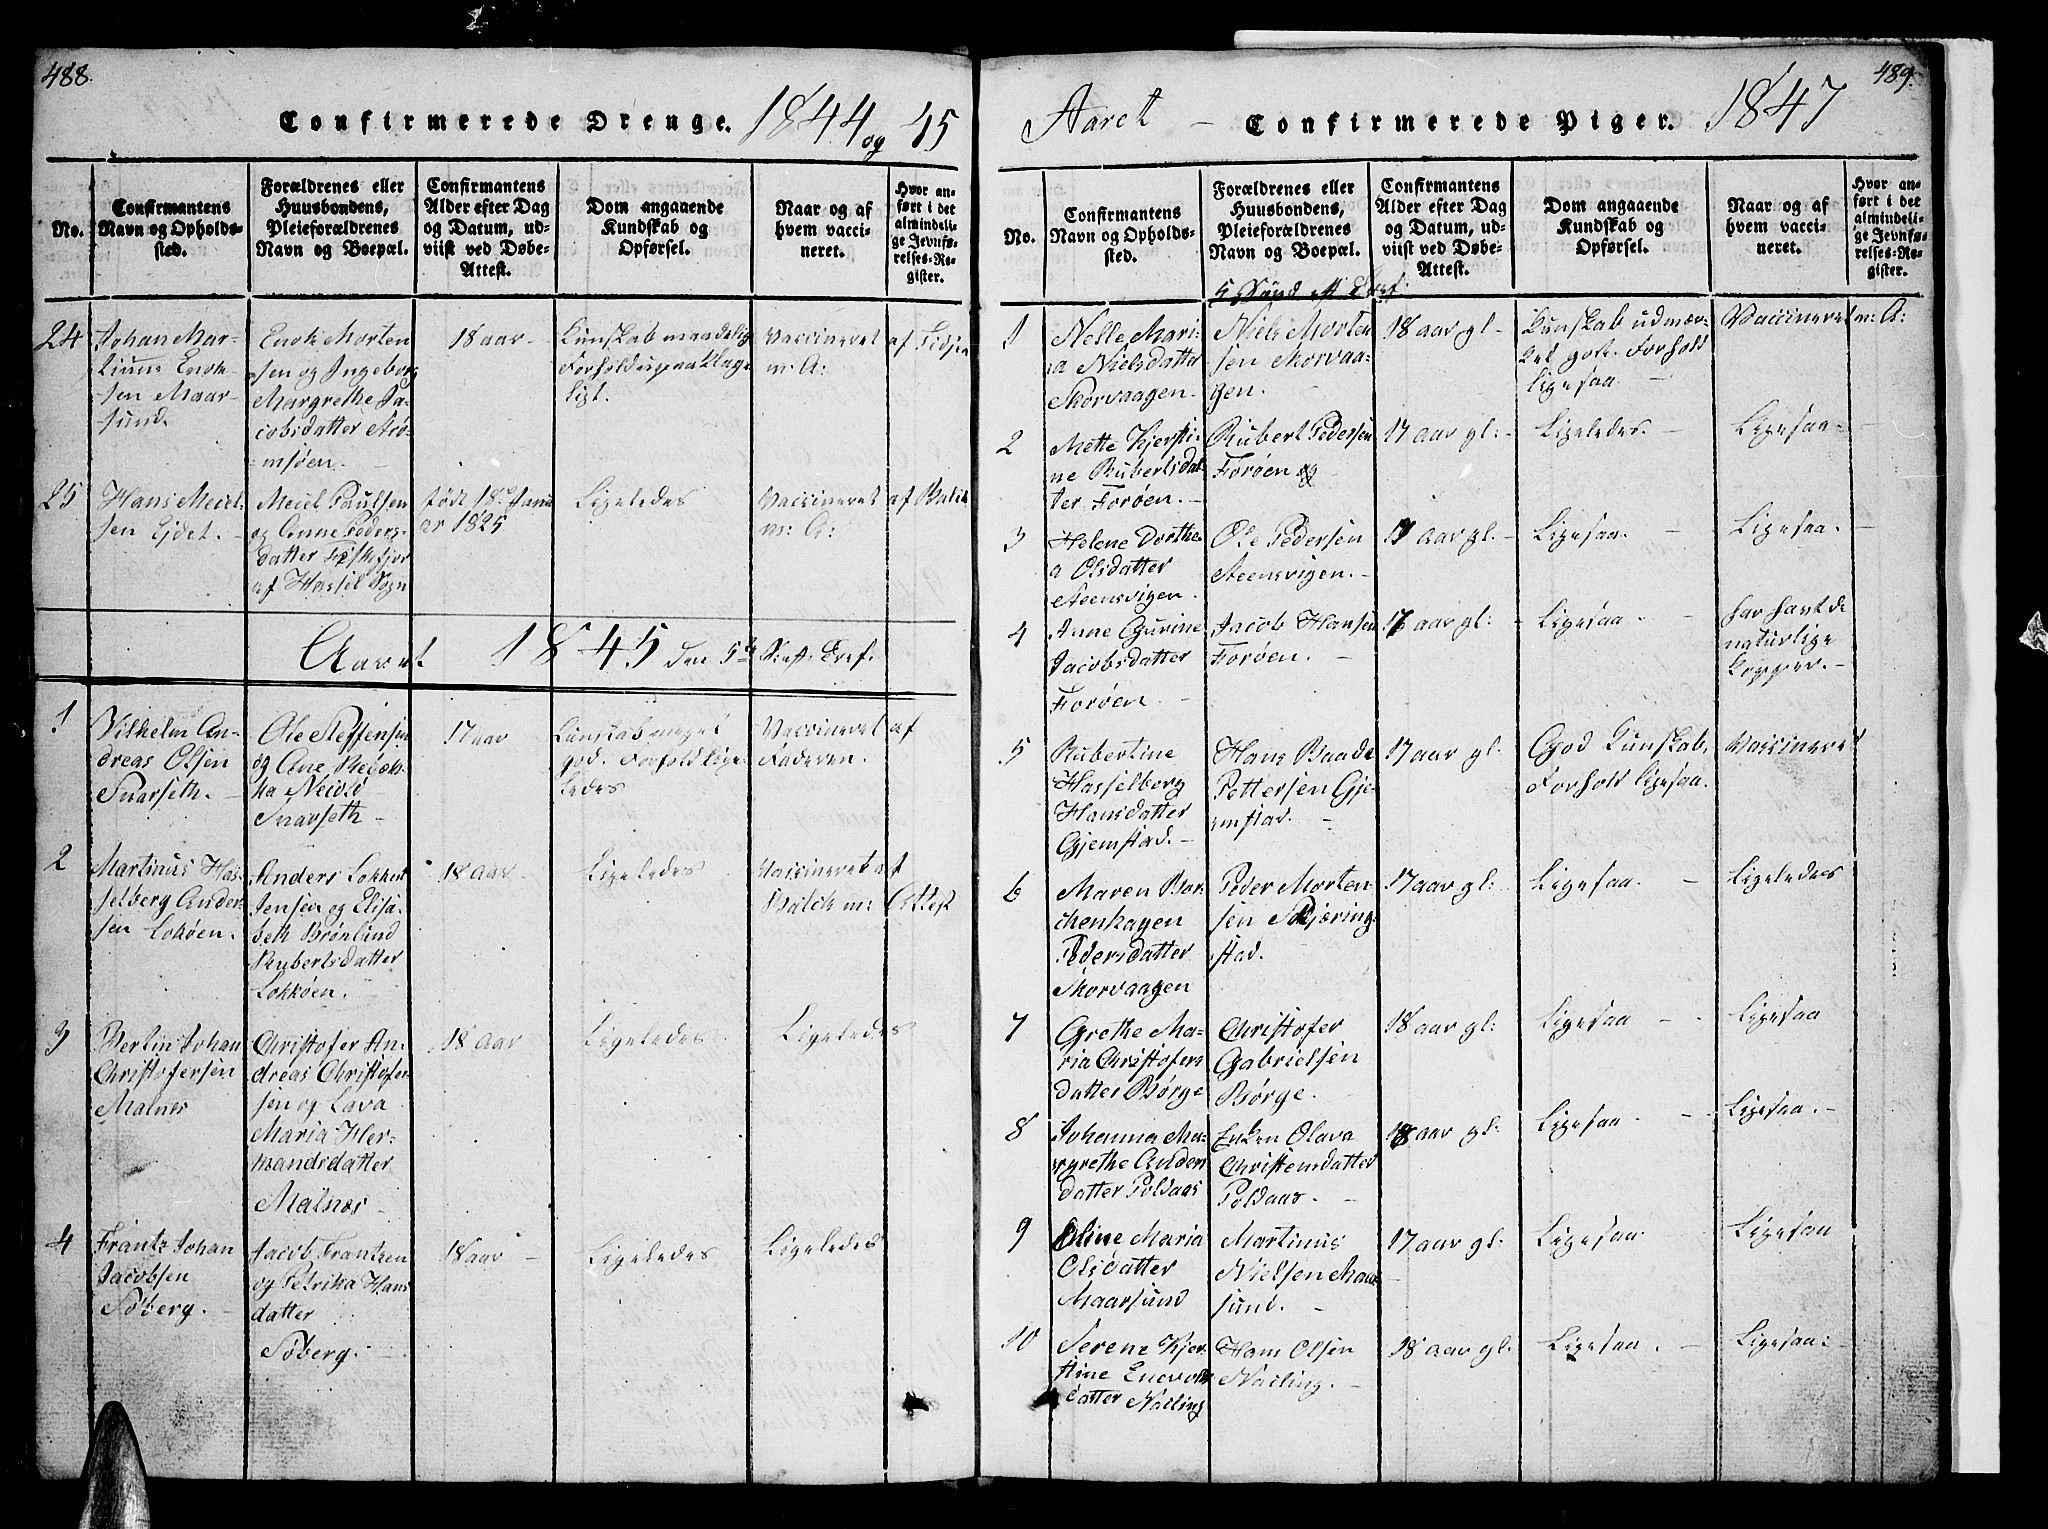 488.
Confirmerede Drenge. 1844 og 45
No.
Confirmantens
Navn og Opholds-
sted.
Forældrenes eller
Huusbondens,
Pleieforældrenes
Navn og Boepæl.
Confirmantens
Alder efter Dag
og Datum, ud-
viist ved Døbe-
Attest.
Dom angaaende
Kundskab og
Opførsel.
Naar og af
hvem vacci-
neret.
Hvor an-
ført i det
almindeli-
ge Jevnfø-
relses-Re-
gister.
24
Johan Mar-
Enok-
sen Maar-
sund.
Enok Morten
sen og Ingeborg
Margrethe Ja-
cobsdatter
18 aar -
Kunskab maadelig
Forhold upaaklage
ligt.
Vaccineret af
m: A:
25
Hans Mecel-
sen Eidet. -
Mecel Paulsen
og Anne Peders-
datter
af Hassel Sogn
født 18de Janu
ar 1825
Ligeledes
Vaccineret af
m: A:
Aaret 1845 den 5te
1
Vilhelm An-
dreas Olsen
Snarseth. -
Ole Steffensen
og Ane Rebek-
ka
Snarseth -
17 aar
Kunskab meget
god. Forhold lige
ledes
Vaccineret af
Faderen.
2
Martinus Has-
selberg Ander-
sen Lokøen.
Anders Lokkert
Jensen og Elisa-
beth Brønlund
Rubertsdatter
Lokkøen.
18 aar -
Ligeledes
Vaccineret af
Balch m: Attest
3
Johan
Christofersen
Malnes
Christofer An-
dreas Christofer-
sen og Lava
Maria Her-
mandsdatter
Malnes -
18 aar
Ligeledes
Ligeledes
4
Frantz Johan
Jacobsen
Søberg. -
Jacob Frantzen
og Petrika Hans
datter
Søberg.
18 aar -
Ligeledes
Ligeledes
489.
Aaret - Confirmerede Piger. 1847
No.
Confirmantens
Navn og Opholds-
sted.
Forældrenes eller
Huusbondens,
Pleieforældrenes
Navn og Boepæl.
Confirmantens
Alder efter Dag
og Datum, ud-
viist ved Døbe-
Attest.
Dom angaaende
Kundskab og
Opførsel.
Naar og af
hvem vacci-
neret.
Hvor an-
ført i det
almindeli-
ge Jevnfø-
relses-Re-
gister.
1
Nelle Mari-
a Nielsdatter
Skorvaagen -
Niels Morten
sen Skorvaa-
gen.
18 aar gl -
Kunskab udmær-
ket god. Forhold
ligesaa -
Vaccineret m: A:
2
Mette Kjersti-
ne Rubertsdat
ter Forøen. -
Rubert Pedersen
Forøen
17 aar gl: -
Ligeledes. -
Ligesaa -
3
Helene Dorthe-
a Olsdatter
Steensvigen. -
Ole Pedersen
Steensvigen. -
17 aar gl. -
Ligesaa. -
Ligesaa. -
4
Anne Gurine
Jacobsdatter
Forøen -
Jacob Hansen
Forøen. -
aar gl: -
Ligesaa. -
har havt de
naturlige
kopper. -
5
Rubertine
Hasselberg
Hansdatter
Gjemstad. -
Hans Baade
Pettersen Gje-
mstad. -
17 aar gl.
God Kunskab,
Forhold ligesaa.
Vaccineret
6
Maren Bor-
chenhagen
Pedersdatter
Skorvaagen
Peder Morten
sen Skjæring-
stad.
17 aar gl:
Ligesaa. -
Ligeledes
7
Grethe Ma-
ria Christofers
datter Børge
Christofer
Gabrielsen
Børge. -
18 aar gl:
Ligesaa -
Ligesaa
8
Johanna Ma-
rgrethe Anders
datter Poldaas
Enken Olava
Christensdatter
Poldaas. -
18 aar gl:
Ligesaa. -
Ligesaa. -
9
Oline Maria
Olsdatter
Maarsund
Martinus
Nielsen Maar
sund. -
17 aar gl:
Ligesaa
Ligesaa
10
Serene Kjer-
stine Enevolds
datter Nailing
Hans Olsen
Nailing. -
18 aar gl.
Ligesaa. -
Ligesaa: